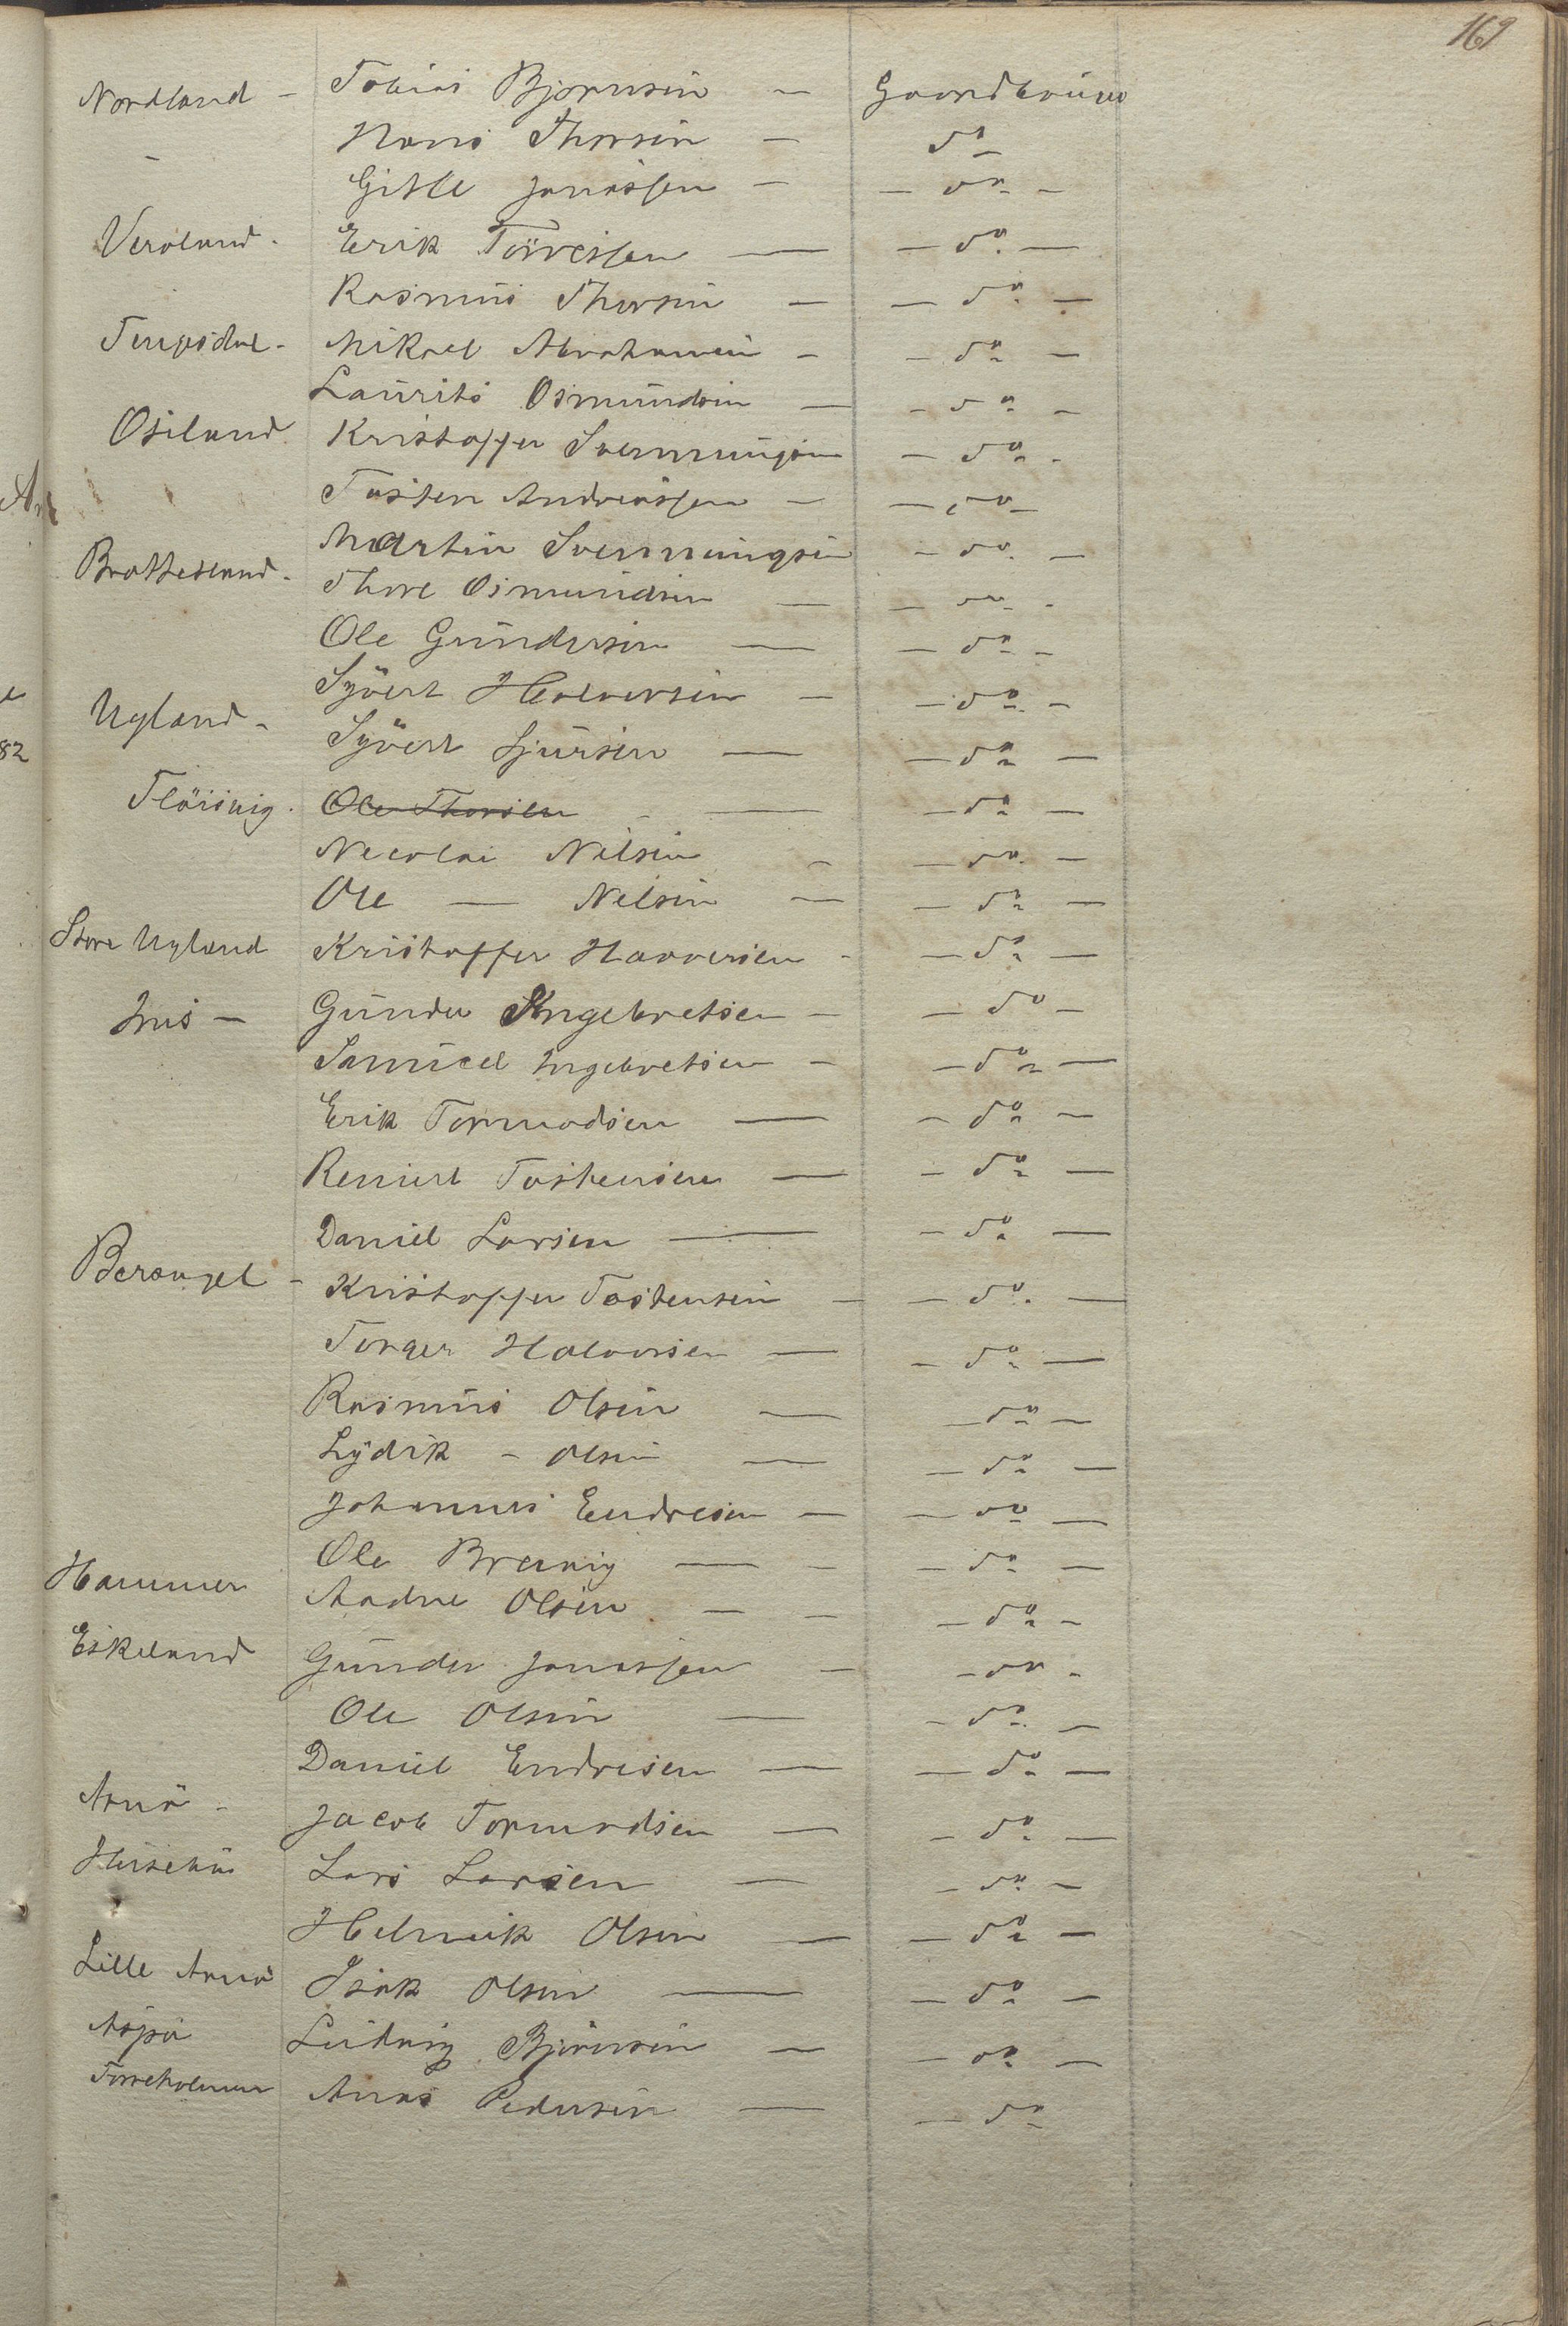 169
Nordland - Tobias Bjørnsen - Gaardbruger
Hans Thorsen - do
Gitle Jonassen - - do -
Veraland - Erik Törressen - - do -
Rasmus Thorsen - - do -
Tengsdal - Mikael Abrahamsen - - do -
Laurits Osmundsen - - do -
Osiland Kristoffer Svenningsen - do -
Tosten Andreassen - - do -
Martin Svenningsen - do -
Bratteland - Thore Osmundsen - - do -
Ole Gundersen - - do -
Syvert Halvorsen - - do -
Uyland - Syvert Sjursen - - do -
Flöisvig Ole Thorsen - - do -
Necolai Nilsen - - do -
Ole - Nilsen - - do -
Store Uyland Kristoffer Haaversen - - do -
Hus - Gunder Ingebretsen - - do -
Samuel Ingebretsen - - do -
Erik Tormodsen - - do -
Reniert Tostensen - - do -
Daniel Larsen - - do -
Berangel - Kristoffer Tostensen - - do -
Torger Halvorsen - - do -
Rasmus Olsen - - do -
Lydik - Olsen - - do -
Johannes Endresen - - do -
Ole Brevig - - - do -
Hammer Aadne Olsen - - - do -
Eskeland Gunder Jonassen - - do -
Ole Olsen - - do -
Daniel Endresen - - do -
Arnö - Jacob Tormodsen - - do -
Husebö Lars Larsen - - do -
Helmik Olsen - - do -
Lille Arnö Isak Olsen - - do -
Aspö Ludvig Björnsen - - do -
Torreholmen Aanas Pedersen - - do